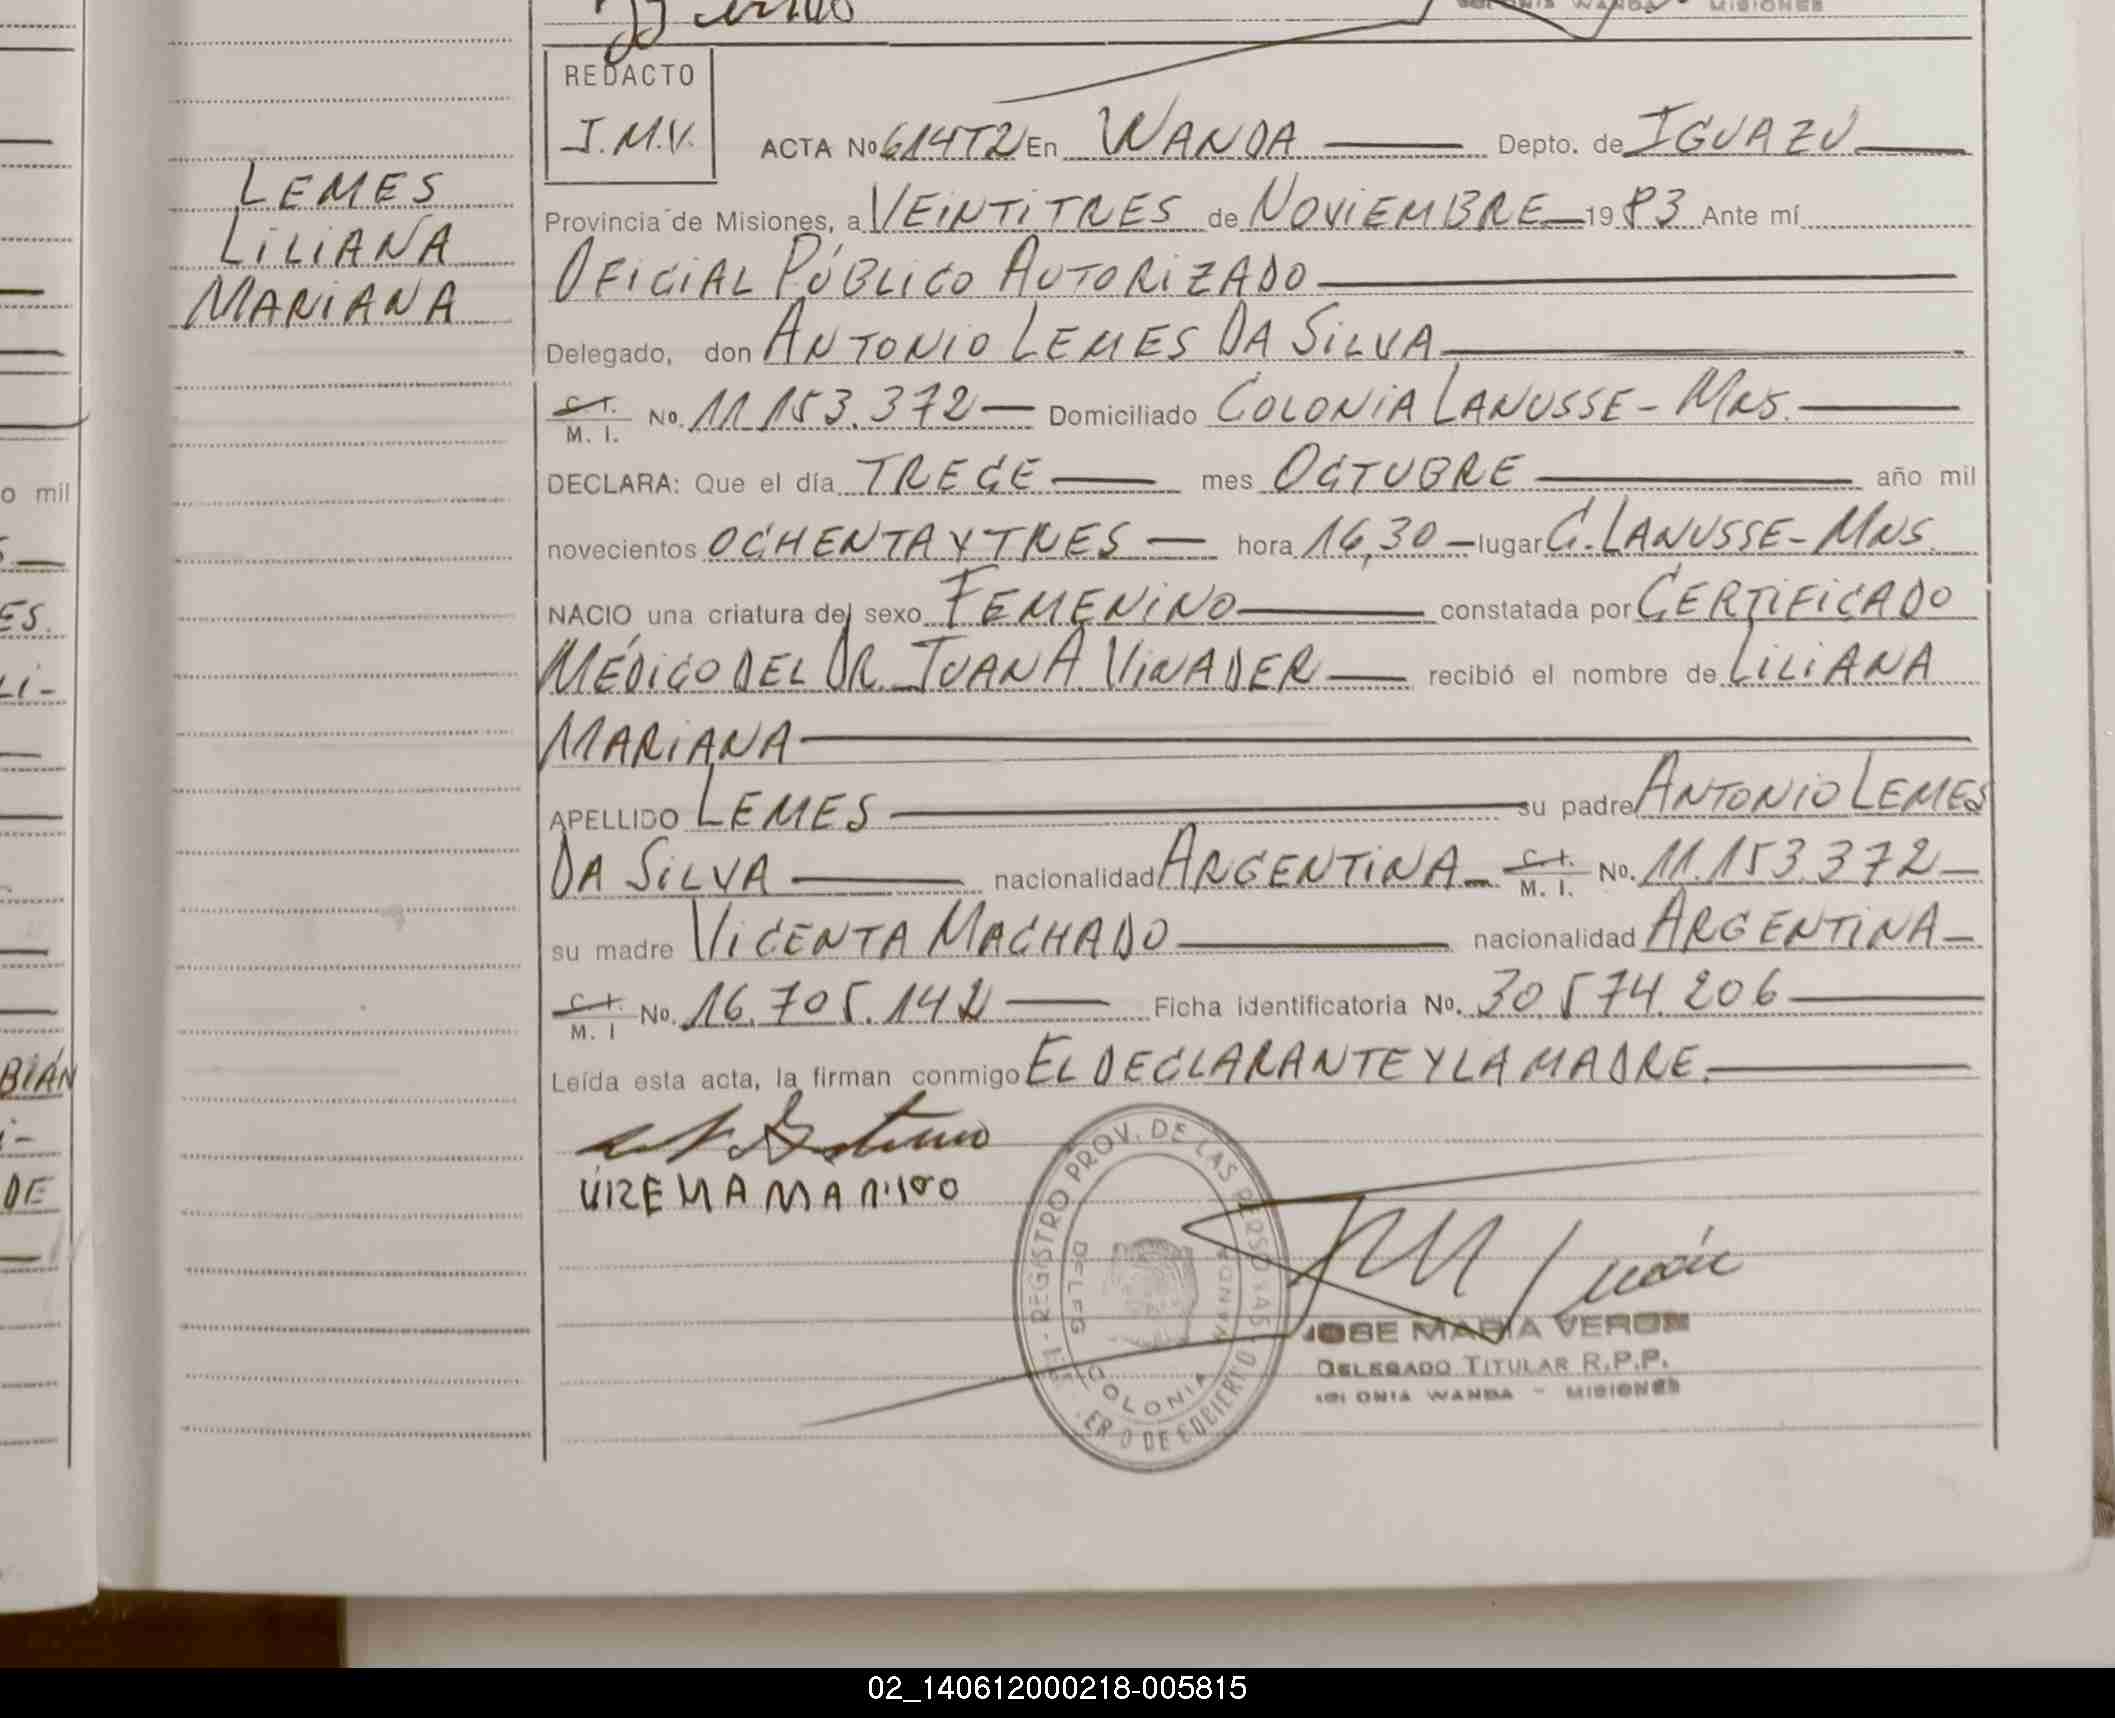 REDACTO
J.M.V.
ACTA No 614T2 En WANDA Depto. de IGUAZU
LEMES
LILIANA
MARIANA
Provincia de Misiones, a VEINTITRES de NOVIEMBRE 1983 Ante mí
OFICIAL PÚBLICO AUTORIZADO
Delegado, don ANTONIO LEMES DA SILVA
C. I. M. I. No. 11.153.372 Domiciliado COLONIA LANUSSE - MNS.
DECLARA: Que el día TRECE mes OCTUBRE año mil
novecientos OCHENTA Y TRES hora 16,30 lugar C. LANUSSE - MNS.
NACIO una criatura del sexo FEMENINO constatada por CERTIFICADO
MÉDICO DEL DR. JUAN A. VINADER recibió el nombre de LILIANA
MARIANA
APELLIDO LEMES su padre ANTONIO LEMES
DA SILVA nacionalidad ARGENTINA C. I. M. I. No. 11.153.372
su madre VICENTA MACHADO nacionalidad ARGENTINA
C. I. M. I No. 16.705.142 Ficha identificatoria No. 30.574.206
Leída esta acta, la firman conmigo EL DECLARANTE Y LA MADRE.
REGISTRO PROV. DE LAS PERSONAS
DELEG
COLONIA WANDA
JOSE MARIA VERON
DELEGADO TITULAR R.P.P.
COLONIA WANDA - MISIONES
o mil
ES.
LI-
BIÁN
DE
02_140612000218-005815